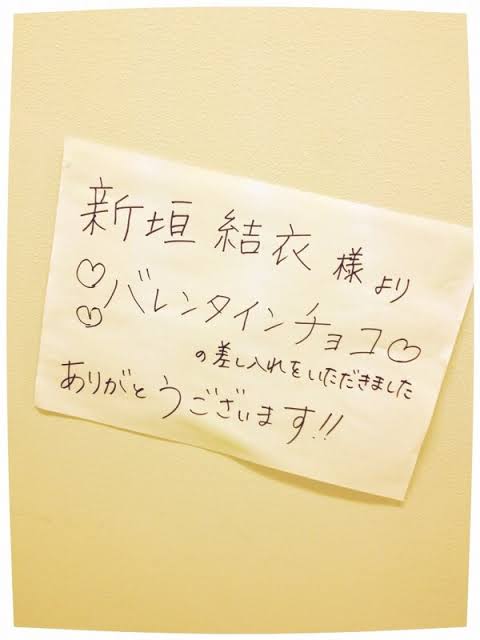 新垣 結衣 様 より
♡♡バレンタインチョコ♡
の差し入れをいただきました
ありがとうございます!!